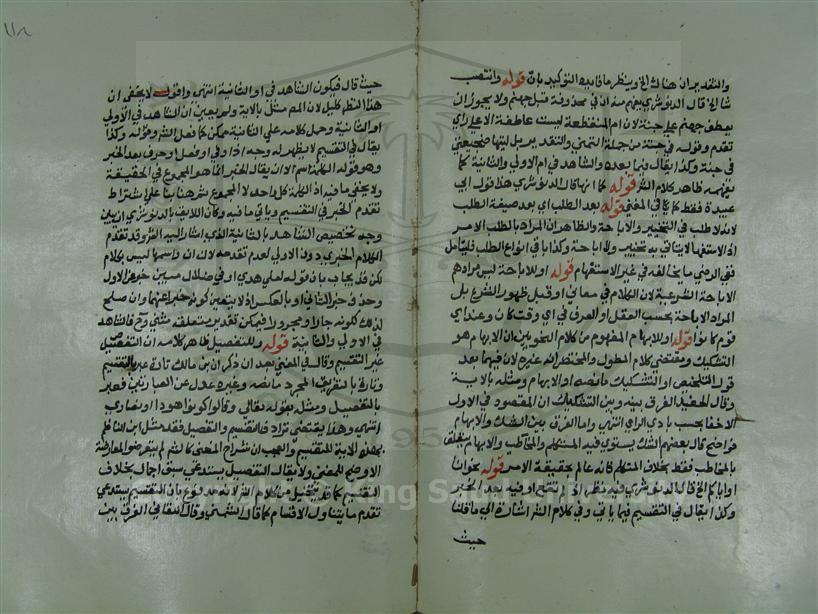 والتقدير ان هناك الخ وينظر ما فايدة التوكيد بان قوله وانتصب
شا الخ قال الدنوشري يفهم منه ان في محذوفة قبل جهنم ولا يجوز ان
يعطف جهنم على جنة لان ام المنقطعة ليست عاطفة الا على راي
تقدم وقوله في جنة من جملة التمني والتقدير بل ليتها ضجيعتي
في جنة وكذا يقال فيما بعده والشاهد في ام الاولى والثانية كما
يفهمه ظاهر كلام الشر قوله كما انها قال الدنوشري هذا قول ابي
عبيدة فقط كما في المغني قوله بعد الطلب اي بعد صيغة الطلب
لانه لا طلب في التخيير والاباحة والظاهر ان المراد بالطلب الامر
اذ الاستفهام لا يتاتى به تخيير ولا اباحة وكذا باقي انواع الطلب فليتامل
ففي الرضي ما يخالفه في غير الاستفهام قوله او للاباحة ليس مرادهم
الاباحة الشرعية لان الكلام في معاني او قبل ظهور الشرع بل
المراد الاباحة بحسب العقل او العرف في اي وقت كان وعند اي
قوم كانوا قوله او للابهام المفهوم من كلام النحويين ان الابهام هو
التشكيك ومقتضى كلام المطول والمختصر انه غيره لان فيهما بعد
قول التلخيص او التشكيك ما نصه او الابهام ومثله بالاية
وقال الحفيد الفرق بينه وبين التشكيك ان المقصود في الاول
الاخفا بحسب بادي الراي انتهى واما الفرق بين الشك والابهام
فواضح قال بعضهم الشك يستوي فيه المتكلم والمخاطب والابهام يتعلق
بالمخاطب فقط بخلاف المتكلم فانه عالم بحقيقة الامر قوله نحو انا
او اياكم الخ قال الدنوشري فيه نظر اذ لم تقع او فيه بعد الخبر
وكذا يقال في التقسيم فيما ياتي وفي كلام الشر اشارة الى ما قلنا
حيث
حيث قال فيكون الشاهد في او الثانية انتهى واقول لا يخفى ان
هذا النظر كليل لان المص مثل بالاية ولم يعين ان الشاهد في الاولى
او الثانية وحمل كلامه على الثانية ممكن كما فعل الشر وقوله وكذا
يقال في التقسيم لا يظهر له وجه اذ او في او فعل او حرف بعد الخبر
وهو قوله الكلمة اسم الا ان يقال الخبر انما هو المجموع في الحقيقة
ولا يخفى ما فيه اذ الكلمة كل واحد لا المجموع نشر هنا بنا على اشتراط
تقدم الخبر في التقسيم وياتي ما فيه وكان اللايق بالدنوشري ان يبين
وجه تخصيص الشاهد بالثانية الذي اشار اليه الشر وقد تقدم
الكلام الخبري دون الاولى لعدم تقدمه لان ان واسمها ليس بكلام
لكن قد يجاب بان قوله لعلى هدى او في ضلال مبين خبر عن الاول
وحذف خبر الثاني او بالعكس اذ لا يتعين كونه خبرا عنهما وان صلح
لذلك لكونه جارا ومجرورا فيمكن تقدير متعلقه مثنى وح فالشاهد
في الاولى والثانية قوله وللتفصيل ظاهر كلامه ان التفصيل
غير التقسيم وقال في المغني بعد ان ذكر ان بن مالك تارة عبر بالتقسيم
وتارة بالتفريق المجرد ما نصه وغيره عدل عن العبارتين فعبر
بالتفصيل ومثل بقوله تعالى وقالوا كونوا هودا او نصارى
انتهى وهذا يقتضي ترادف التقسيم والتفصيل فقد مثل ابن الناظم
بهذه الاية للتقسيم والعجب ان شراح المغني كالشم لم يتعرضوا لمعارضة
الاوضح للمغني ولا يقال التفصيل يستدعي سبق اجمال بخلاف
التقسيم كما قد يتخيل من كلام الشر لانه مدفوع بان التقسيم يستدعي
تقدم ما يتناول الاقسام كما قال الشمني وقال اللقاني الفرق بين